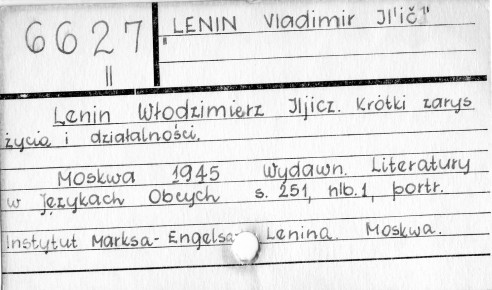 6627
II
"LENIN Vladimir Il'ič"
Lenin Włodzimierz Iljicz. Krótki zarys
życia i działalności.
Moskwa 1945 Wydawn. Literatury
w Językach Obcych s. 251, nlb.1, portr.
Instytut Marksa-Engelsa- Lenina. Moskwa.